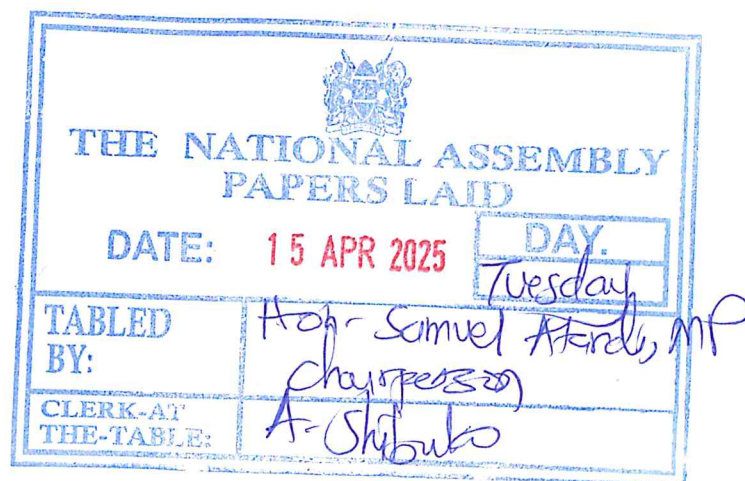 THE NATIONAL ASSEMBLY
PAPERS LAID
DATE: 15 APR 2025
DAY.
Tuesday
TABLED BY:
Hon. Samuel Atandi, MP
Chairperson
CLERK-AT
THE-TABLE:
A. Shibuko